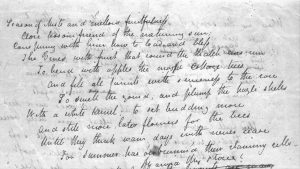 Season of Mists and mellow fruitfulness
Close bosom friend of the maturing sun
Conspiring with him how to load and bless
The Vines with fruit that round the thatch eves run
To bend with apples the moss'd Cottage trees
And fill all fruits with sweeness to the core
To swell the gourd, and plump the hazle shells
With a white kernel; to set budding more
And still more later flowers for the bees
Until they think wam days with never cease
For Summer has o'erbrimm'd their clammy cells